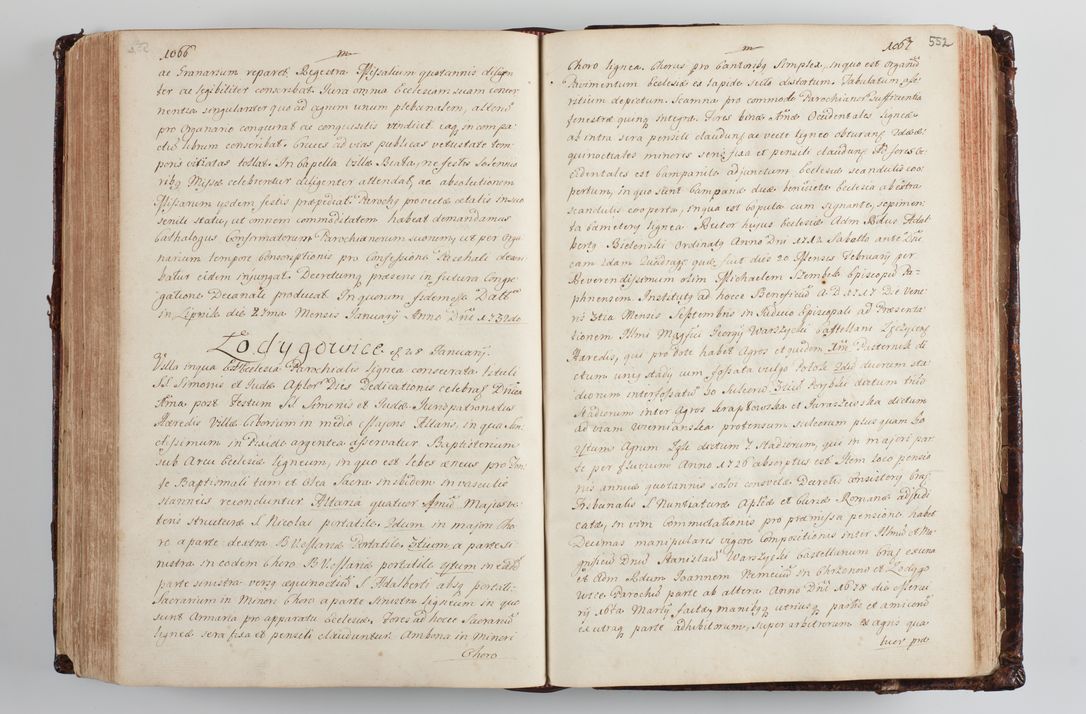 1066
ac Granarium reparet. Regestra Missalium quotannis diligen
ter ac legibiliter conscribat. Jura omnia Ecclesiam suam concer
nentia singulariter quo ad agrum unum plebanalem, alterũ
pro Organario conquirat ac conquisitis vindicet eaq; in compa
ctũ librum conscribat. Cruces ad vias publicas vetustate tem
poris vitiatas tollat. In Capella Villæ Biała, ne festis solennio
ribq Missæ celebrentur diligenter attendat, ac absolutionem
Missarum ijsdem festis præpediat. Parochq provectæ ætatis in suo
senili statu, ut omnem commoditatem habeat demandamus
Cathalogus Confirmatorum Parochianorum suorum, ut per Orga
narium tempore conscriptionis pro Confessione Paschali
batur eidem injungat. Decretum præsens in futura Congre
gatione Decanali producat. In quorum fidem Datt
in Lipnik die 27ma Mensis January Anno Dni 1732do
Łodygowice 28 January.
Villa in qua Ecclesia Parochialis lignea consecrata tituli
SS. Simonis et Judæ Aplor Dies Dedicationis celebrat Dnica
1ma post Festum SS. Simonis et Judæ. Jurispatronatus
Hæredis Villæ Ciborium in medio Majoris Altaris, in quo San
ctissimum in Pixide argentea asservatur Baptisterium
sub Arcu Ecclesiæ ligneum, in quo est lebes æneus pro Fon
te Baptismali tum et Olea Sacra inibidem in vasculis
stanneis reconduntur Altaria quatuor 1mũ Majus la
teris structuræ S. Nicolai portatile. 2dum in majori Cho
ro a parte dextra B.V. Mariæ Portatile. 3tium a parte si
nistra in eodem Choro B.V. Mariæ portatile 4tum in
parte sinistra versq æquinoctiũ S. Adalberti absq portatili.
Sacrarium in Minori Choro a parte sinistra ligneum in quo
sunt Armaria pro apparatu Ecclesiæ, Fores ad hocce Sacrariũ
ligneæ sera fixa et pensili clauduntur. Ambona in Minori
Choro
1067 552
Choro lignea. Chorus pro Cantoribq Simplex, in quo est organũ
Pavimentum Ecclesiæ ex lapide secto distortum. Tabulatum
depictum. Scamna pro commodo Parochianor sufficientia
fenestræ quinq integræ. Fores binæ 1mæ Occidentales ligneæ
ab intra sera pensili clauduntr ac vecte ligneo obturantr 2dæ æ
quinoctiales minores sera fixa et pensili clauduntr. fores Oc
cidentales est Campanile adjunctum Ecclesiæ scandulis coo
pertum, in quo sunt Campanæ duæ benedictæ Ecclesia ab extra
scandulis cooperta, in qua est copula cum signante, sepimen
ta Cæmetery lignea. Rector hujus Ecclesiæ Adm Rdus Adal
bertq Bielenski Ordinatq Anno Dni 1712 Sabbatho ante Dni
cam 2dam Quadrages quæ fuit die 20 Mensis February per
Reverendissimum olim Michaelem Szembek Episcopũ Pa
phnensem. Institutq ad hocce Beneficiũ A.D. 1717 Die Vene
ris 3tia Mensis Septembris in Judicio Episcopali ad Præsenta
tionem Illmi Magfici Georgij Warszycki Castellani Łęczycen
Hæredis, qui pro Dote habet Agros et quidem 1mũ Pasternik di
ctum unig stadij cum fossata vulgo Potok 2dũ duorum sta
diorum interfossatũ 30 Sulcorũ 3tiũ Korybki dictum triũ
Stadiorum inter Agros Skrapkowska et Juraszewska dictum
ad viam Wimianska protensum sulcorum plus quam
Agrum dictum 7. Stadiorum, qui in majori par
te per fluvium Anno 1726 absorptus est. Item loco pensio
nis annuæ quotannis solvi consuetæ. Decreti consistory Crac
Tribunalis S. Nuntiaturæ Aplicæ et Curiæ Romanæ adjudi
catæ, in vim Commutationis pro præmissa pensione habet
Decimas manipulares vigore Compositionis inter Illmũ et Ma
gnificũ Dnũ Stanislaũ Warszycki Castellanum Crac ex una
et Adm Rdum Joannem Nemeciũ in Chrzonow et Lodygo
wice Parochũ parte ab altera Anno Dni 1678 die
ry 16ta Marty, facta, manibq utriusq partis et amicorũ
ex utraq parte adhibitorum, super arbitrorum ex agris qua
tuor præ